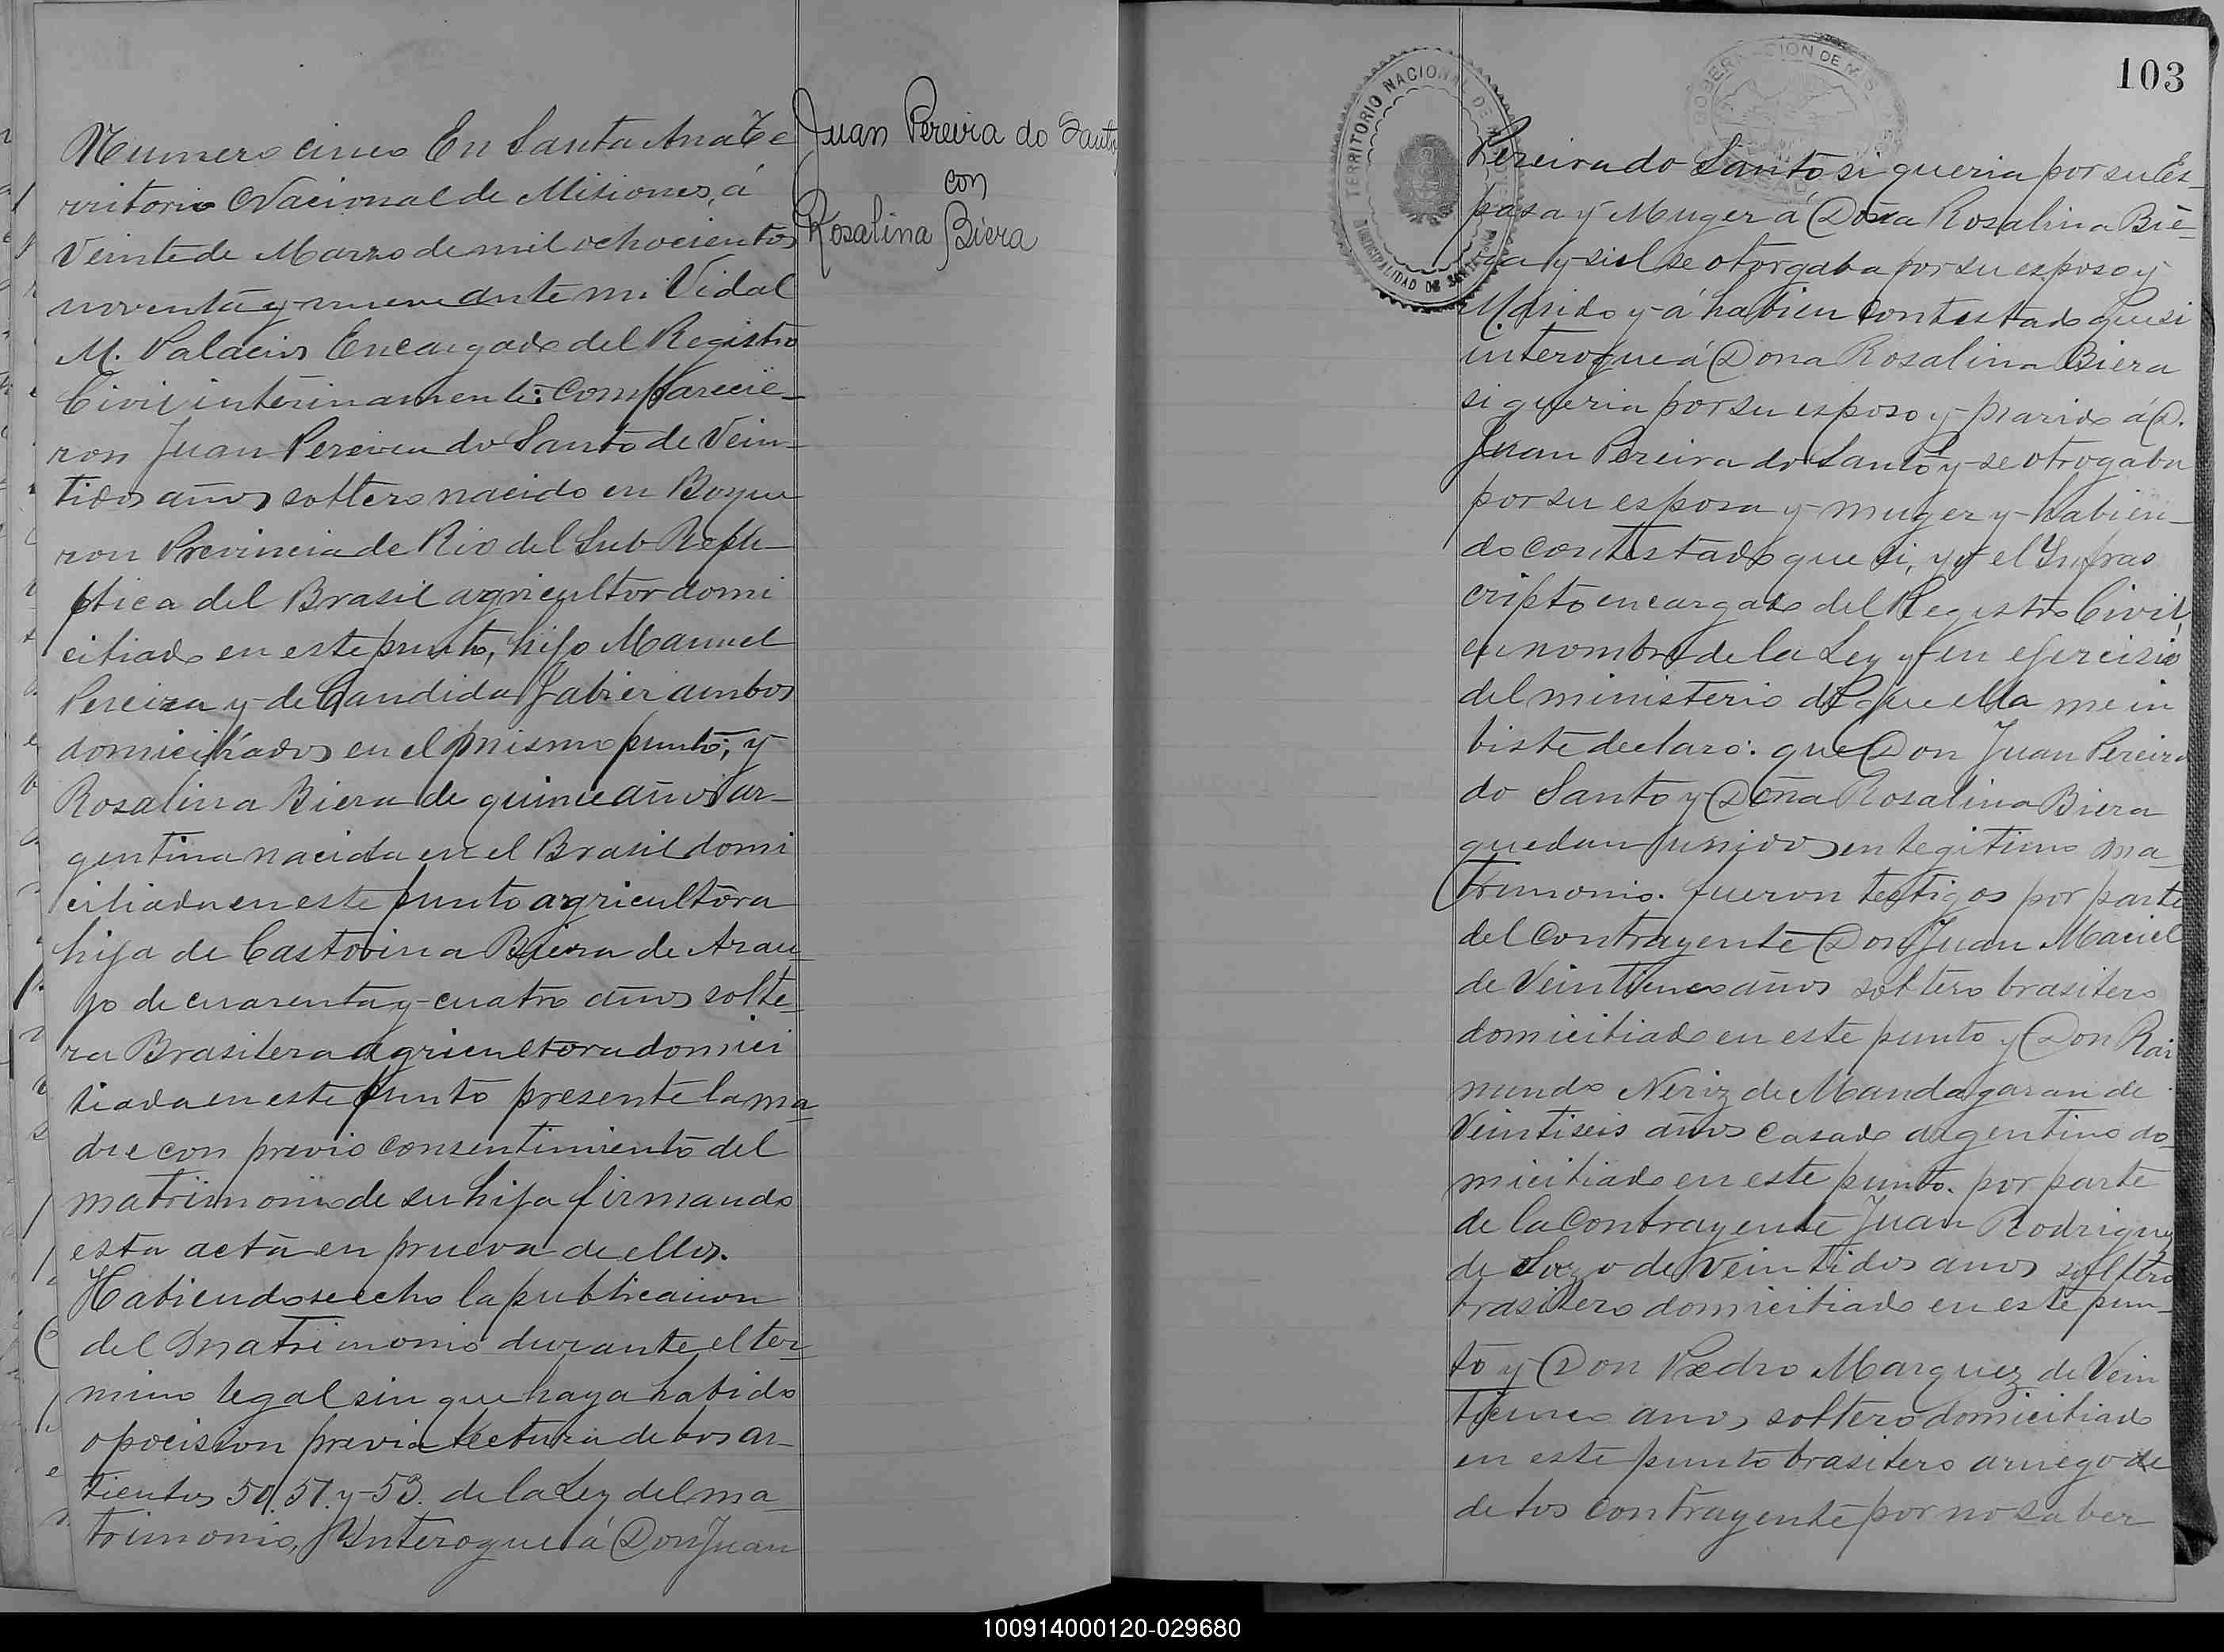 Numero cinco En Santa Ana Te
rritorio Nacional de Misiones, á
Veinte de Marzo de mil ochocientos
noventa y nueve ante mi Vidal
M. Palacios Encargado del Registro
Civil interinamente: comparecie-
ron Juan Pereira do Santo de Vein-
tidos años soltero nacido en Boque
ron Provincia de Rio del Sub Repu-
blica del Brasil agricultor domi
ciliado en este punto, hijo Manuel
Pereira y de Candida Gabier ambos
domiciliados en el mismo punto; y
Rosalina Biera de quince años ar-
gentina nacida en el Brasil domi
ciliada en este punto agricultora
hija de Castorina Biera de Arau
jo de cuarenta y cuatro años solte-
ra Brasilera agricultora domici
liada en este punto presente la ma-
dre con previo consentimiento del
matrimonio de su hija firmando
esta acta en prueva de ellos.
Habiendose echo la publicacion
del matrimonio durante el ter-
mino legal sin que haya habido
opocision previa lectura de los ar-
ticulos 50. 51. y 53. de la Ley del ma-
trimonio, Ynterogue á Don Juan
Juan Pereira do Santo
con
Rosalina Biera
103
TERRITORIO NACIONAL DE MISIONES
MUNICIPALIDAD DE SANTA ANA
GOBERNACION DE MISIONES
Pereira do Santo si queria por su Es-
posa y Muger á Doña Rosalina Bie-
ra y si el se otorgaba por su esposo y
Marido y á habien contestado que si
interogue á Dona Rosalina Biera
si queria por su esposo y marido á D.
Juan Pereira do Santo y se otrogaba
por su esposa y muger y habien-
do contestado que si, yo el Ynfras
cripto encargado del Registro Civil,
en nombre de la Ley y en ejercisio
del ministerio de que ella me in
biste declaro: que Don Juan Pereira
do Santo y Doña Rosalina Biera
quedan unidos en legitimo ma-
trimonio. fueron testigos por parte
del contrayente Don Juan Maciel
de Veinticinco años soltero brasilero
domiciliado en este punto y Don Rai
mundo Neriz de Mandagaran de
Veintiseis años casado argentino do-
miciliado en este punto. por parte
de la contrayente Juan Rodriguez
de de Veintidos anos soltero
brasilero domiciliado en este pun-
to y Don Pedro Marquez de Vein
ticinco anos soltero domiciliado
en este punto brasilero aruego de
de los contrayente por no saber
100914000120-029680